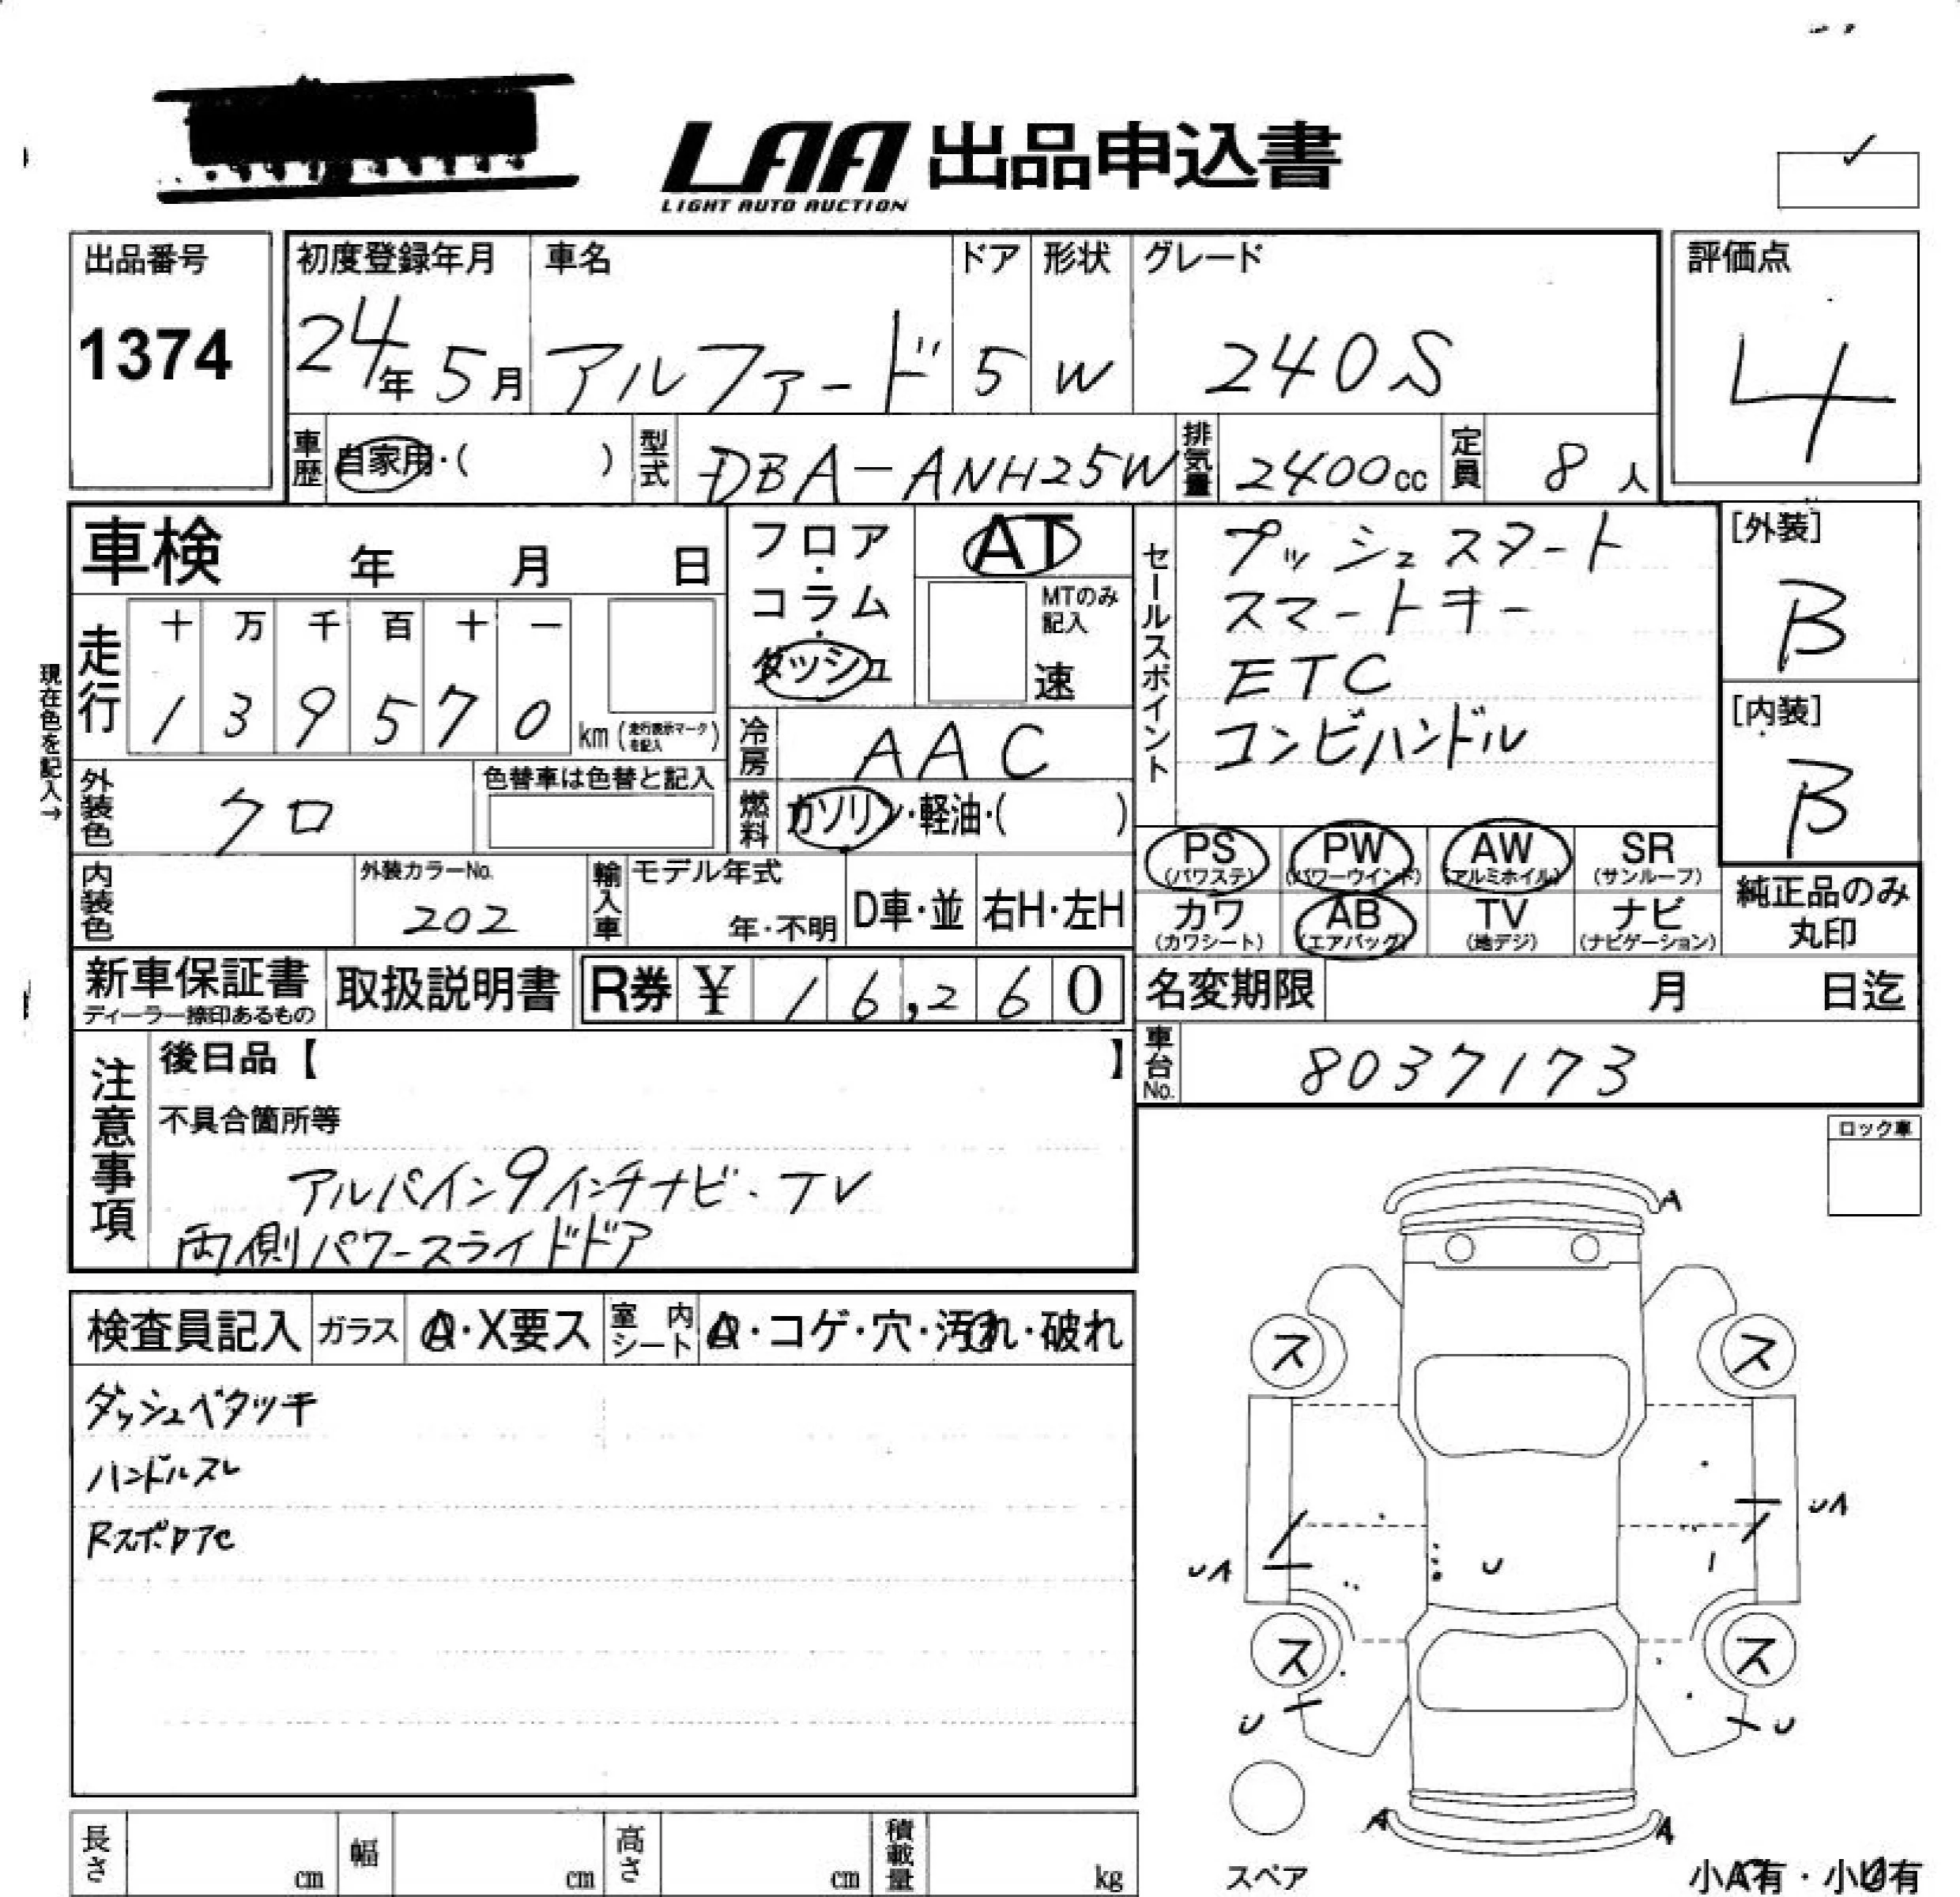 LAA 出品申込書
LIGHT AUTO AUCTION
出品番号 初度登録年月 車名 ドア 形状 グレード 評価点
1374 24年 5月 アルファード 5 W 240S 4
車歴 自家用・( ) 型式 DBA-ANH25W 排気量 2400cc 定員 8人
車検 年 月 日
フロア・コラム・ダッシュ
AT
MTのみ記入
速
セールスポイント
プッシュスタート
スマートキー
ETC
コンビハンドル
[外装]
B
[内装]
B
現在色を記入→
走行 十 万 千 百 十 一
1 3 9 5 7 0 km (走行表示マークを記入)
冷房 AAC
外装色 クロ 色替車は色替と記入
燃料 ガソリン・軽油・( )
PS (パワステ) PW (パワーウインド) AW (アルミホイル) SR (サンルーフ)
カワ (カワシート) AB (エアバッグ) TV (地デジ) ナビ (ナビゲーション)
純正品のみ
丸印
内装色 外装カラーNo. 202 輸入車 モデル年式 年・不明 D車・並 右H・左H
新車保証書 取扱説明書 R券 ¥ 16,260
ディーラー捺印あるもの
名変期限 月 日迄
車台No. 8037173
注意事項
後日品【 】
不具合箇所等
アルパイン9インチナビ・TV
両側パワースライドドア
ロック車
検査員記入 ガラス A・X要ス 室内シート A・コゲ・穴・汚れ・破れ
ダッシュベタツキ
ハンドルスレ
A
ス ス
UA
UA U
ス ス
U U
A A
スペア
小A有・小U有
長さ cm 幅 cm 高さ cm 積載量 kg